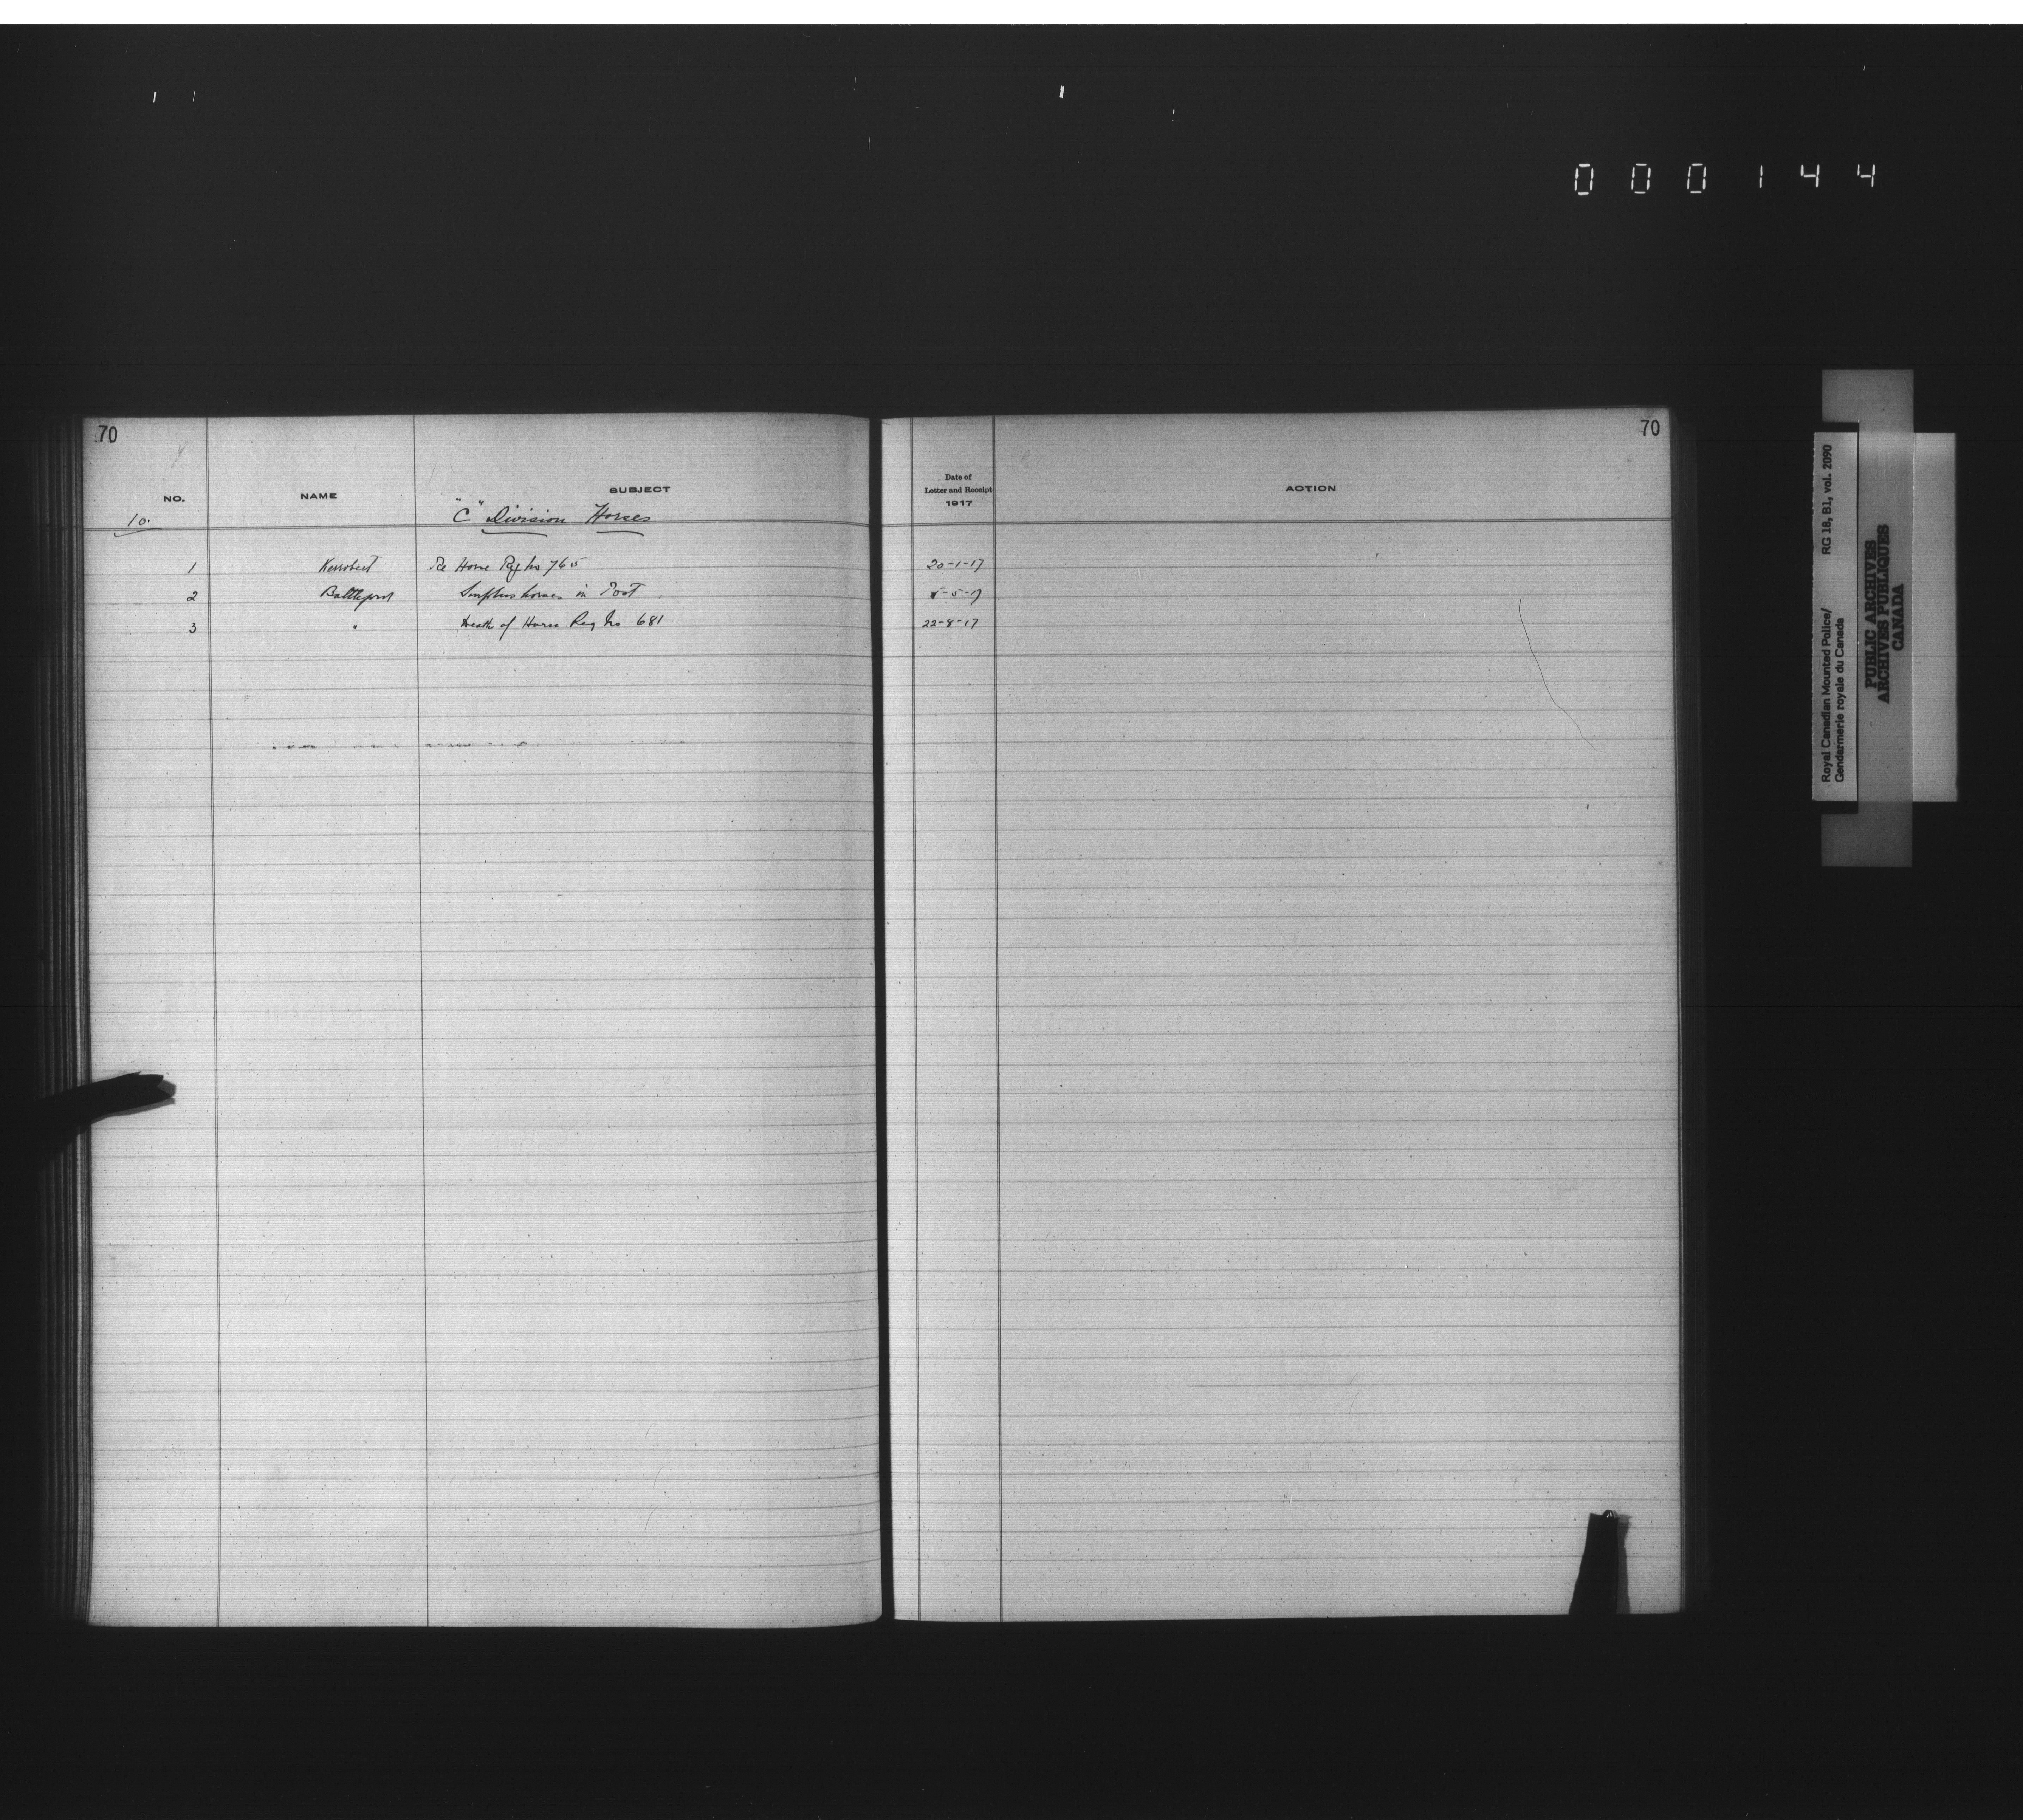 000144
70
70
NO.
NAME
SUBJECT
Date of
Letter and Receipt
1917
ACTION
10.
"C" Division Horses
1 Kerrobert Re Horse Reg No 765 20-1-17
2 Battleford Surplus horses in Post -5-17
3 " Death of Horse Reg No 681 22-8-17
Royal Canadian Mounted Police/
Gendarmerie royale du Canada
RG 18, B1, vol. 2090
PUBLIC ARCHIVES
ARCHIVES PUBLIQUES
CANADA